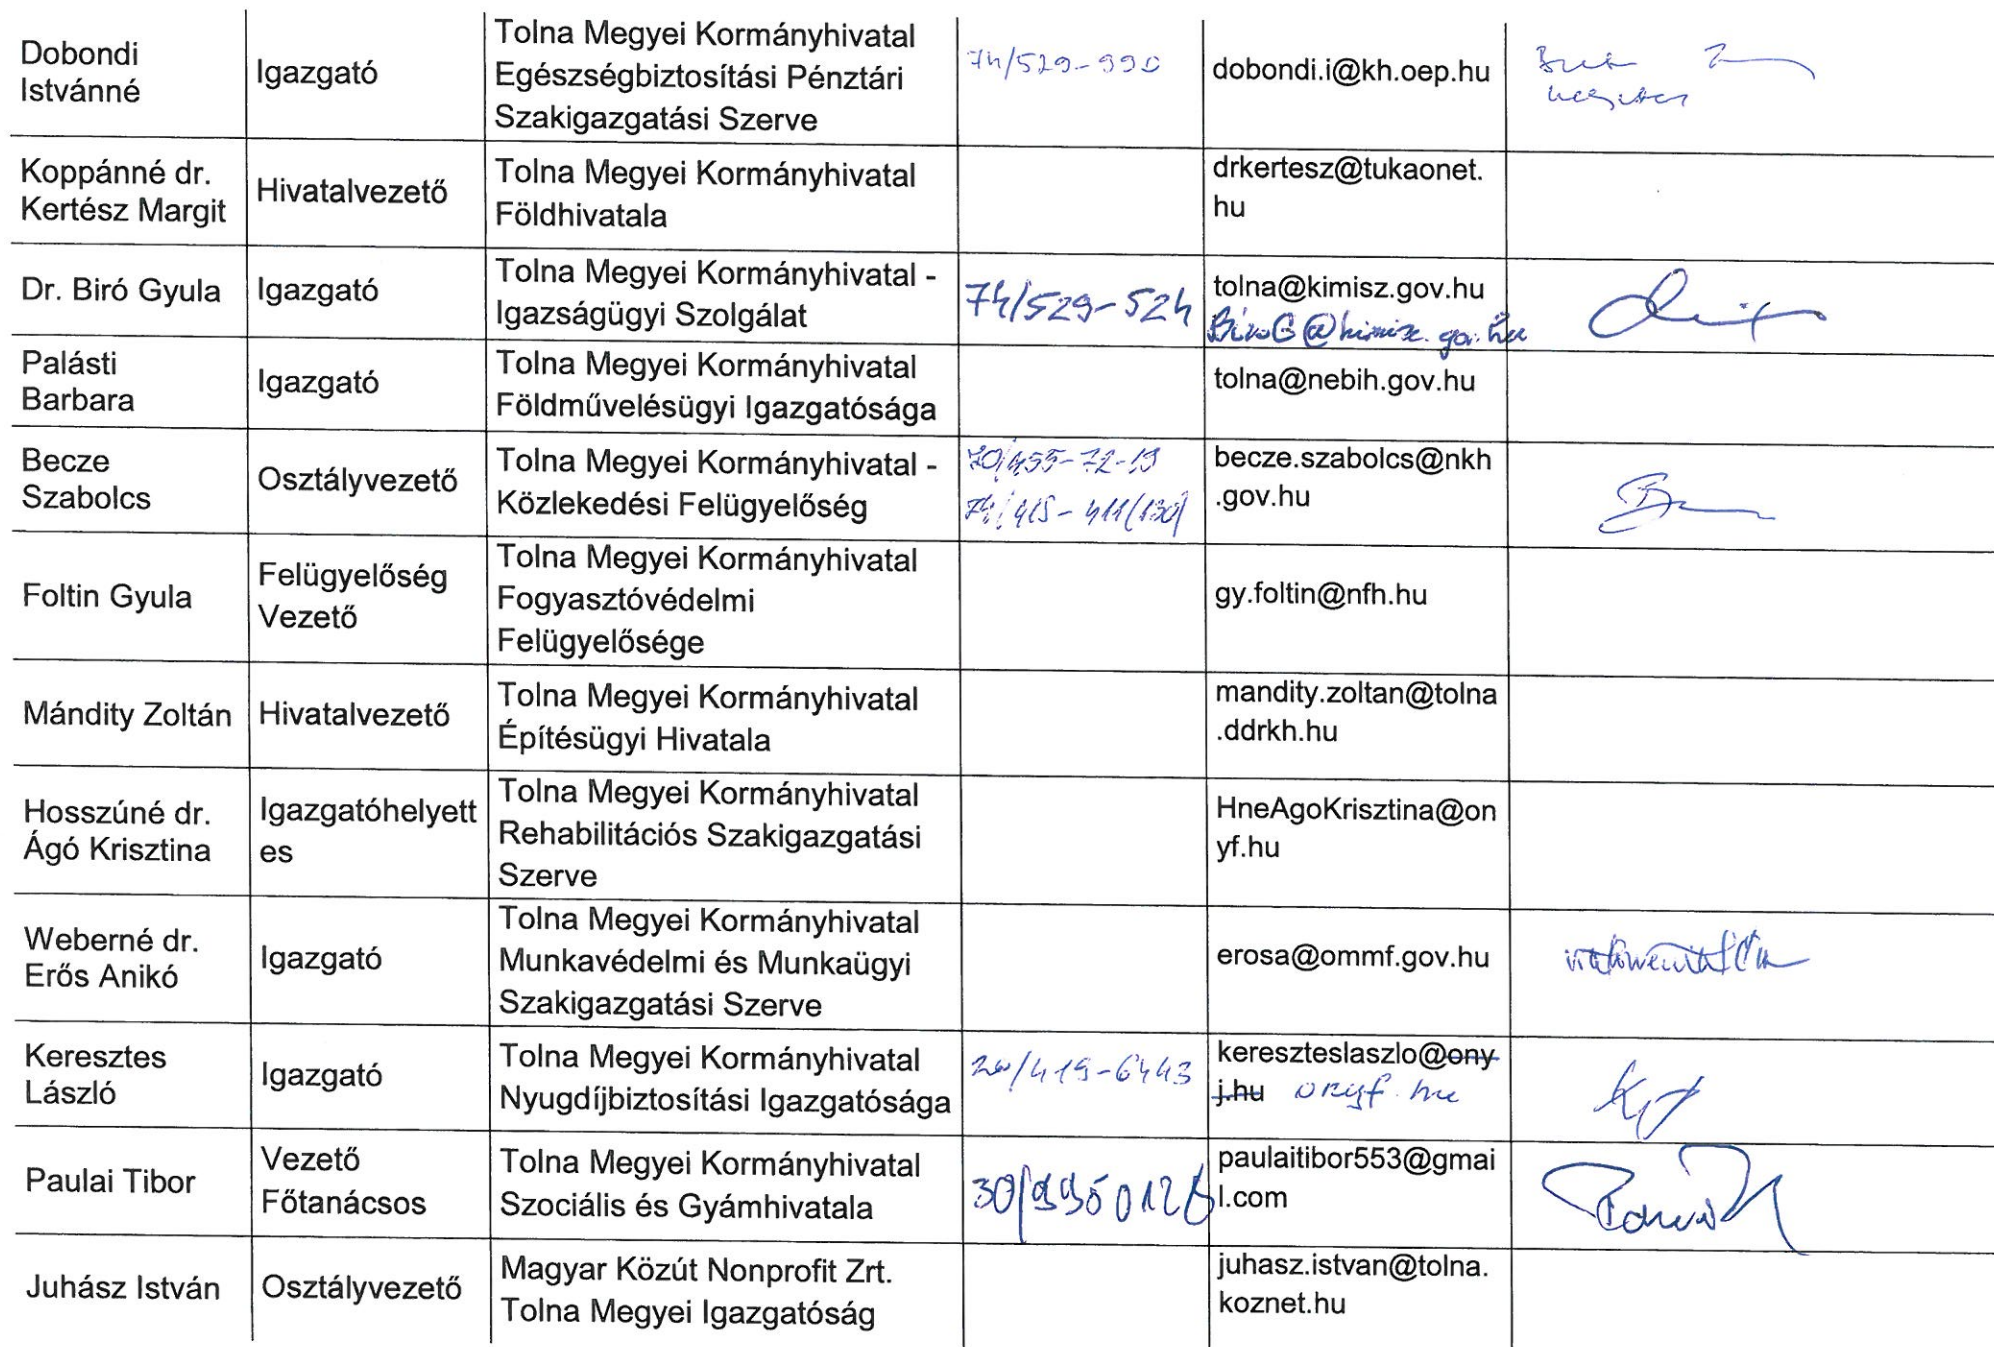 Dobondi
Istvánné
Igazgató
Tolna Megyei Kormányhivatal
Egészségbiztosítási Pénztári
Szakigazgatási Szerve
74/529-990
dobondi.i@kh.oep.hu
Koppánné dr.
Kertész Margit
Hivatalvezető
Tolna Megyei Kormányhivatal
Földhivatala
drkertesz@tukaonet.
hu
Dr. Biró Gyula
Igazgató
Tolna Megyei Kormányhivatal -
Igazságügyi Szolgálat
74/529-524
tolna@kimisz.gov.hu
BiroG@kimisz.gov.hu
Palásti
Barbara
Igazgató
Tolna Megyei Kormányhivatal
Földművelésügyi Igazgatósága
tolna@nebih.gov.hu
Becze
Szabolcs
Osztályvezető
Tolna Megyei Kormányhivatal -
Közlekedési Felügyelőség
70/455-72-19
74/415-411(130)
becze.szabolcs@nkh
.gov.hu
Foltin Gyula
Felügyelőség
Vezető
Tolna Megyei Kormányhivatal
Fogyasztóvédelmi
Felügyelősége
gy.foltin@nfh.hu
Mándity Zoltán
Hivatalvezető
Tolna Megyei Kormányhivatal
Építésügyi Hivatala
mandity.zoltan@tolna
.ddrkh.hu
Hosszúné dr.
Ágó Krisztina
Igazgatóhelyett
es
Tolna Megyei Kormányhivatal
Rehabilitációs Szakigazgatási
Szerve
HneAgoKrisztina@on
yf.hu
Weberné dr.
Erős Anikó
Igazgató
Tolna Megyei Kormányhivatal
Munkavédelmi és Munkaügyi
Szakigazgatási Szerve
erosa@ommf.gov.hu
Keresztes
László
Igazgató
Tolna Megyei Kormányhivatal
Nyugdíjbiztosítási Igazgatósága
20/419-6443
kereszteslaszlo@ony
j.hu onyf.hu
Paulai Tibor
Vezető
Főtanácsos
Tolna Megyei Kormányhivatal
Szociális és Gyámhivatala
paulaitibor553@gmai
l.com
Juhász István
Osztályvezető
Magyar Közút Nonprofit Zrt.
Tolna Megyei Igazgatóság
juhasz.istvan@tolna.
koznet.hu